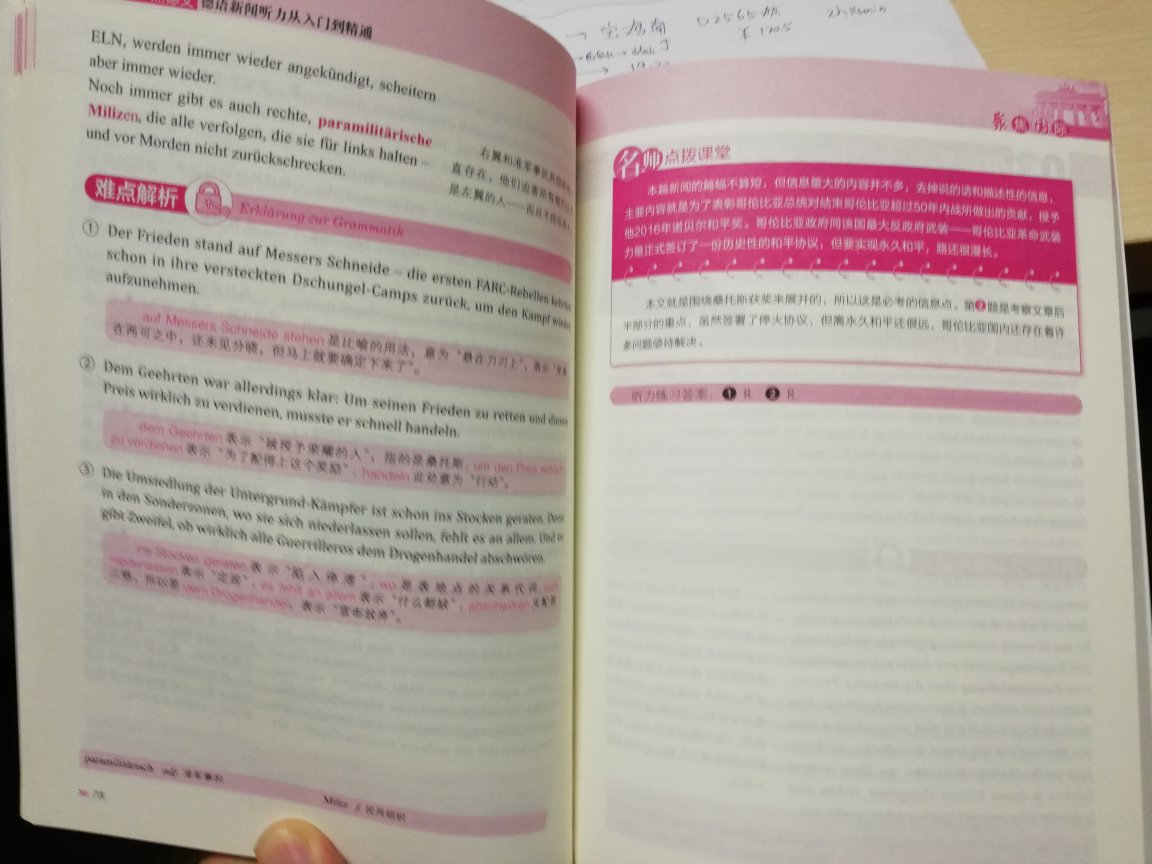 德语新闻听力从入门到精通
ELN, werden immer wieder angekündigt, scheitern
aber immer wieder.
Noch immer gibt es auch rechte, paramilitärische
Milizen, die alle verfolgen, die sie für links halten –
und vor Morden nicht zurückschrecken.
右翼和准军事民兵组织
直存在，他们迫害所有
是左翼的人——而且不
难点解析
Erklärung zur Grammatik
① Der Frieden stand auf Messers Schneide – die ersten FARC-Rebellen kehrten
schon in ihre versteckten Dschungel-Camps zurück, um den Kampf wieder
aufzunehmen.
auf Messers Schneide stehen 是比喻的用法，意为“悬在刀刃上”，表示“
在两可之中，还未见分晓，但马上就要确定下来了”。
② Dem Geehrten war allerdings klar: Um seinen Frieden zu retten und diesen
Preis wirklich zu verdienen, musste er schnell handeln.
dem Geehrten 表示“被授予荣耀的人”，指的是桑托斯；um den Preis wirklich
zu verdienen 表示“为了配得上这个奖励”；handeln 此处意为“行动”。
③ Die Umsiedlung der Untergrund-Kämpfer ist schon ins Stocken geraten. Denn
in den Sonderzonen, wo sie sich niederlassen sollen, fehlt es an allem. Und es
gibt Zweifel, ob wirklich alle Guerrilleros dem Drogenhandel abschwören.
ins Stocken geraten 表示“陷入停滞”，wo 是表地点的关系代词，sich
niederlassen 表示“定居”；es fehlt an allem 表示“什么都缺”；abschwören 支配第
三格，所以是 dem Drogenhandel，表示“宣布放弃”。
paramilitärisch adj. 准军事的
Miliz f. 民兵组织
→ 宝鸡南
聚焦国际
名师点拨课堂
本篇新闻的篇幅不算短，但信息量大的内容并不多，去掉说的话和描述性的信息，
主要内容就是为了表彰哥伦比亚总统对结束哥伦比亚超过50年内战所做出的贡献，授予
他2016年诺贝尔和平奖。哥伦比亚政府同该国最大反政府武装——哥伦比亚革命武装
力量正式签订了一份历史性的和平协议，但要实现永久和平，路还很漫长。
本文就是围绕桑托斯获奖来展开的，所以这是必考的信息点。第❷题是考察文章后
半部分的重点，虽然签署了停火协议，但离永久和平还很远，哥伦比亚国内还存在着许
多问题亟待解决。
听力练习答案：❶ R ❷ R